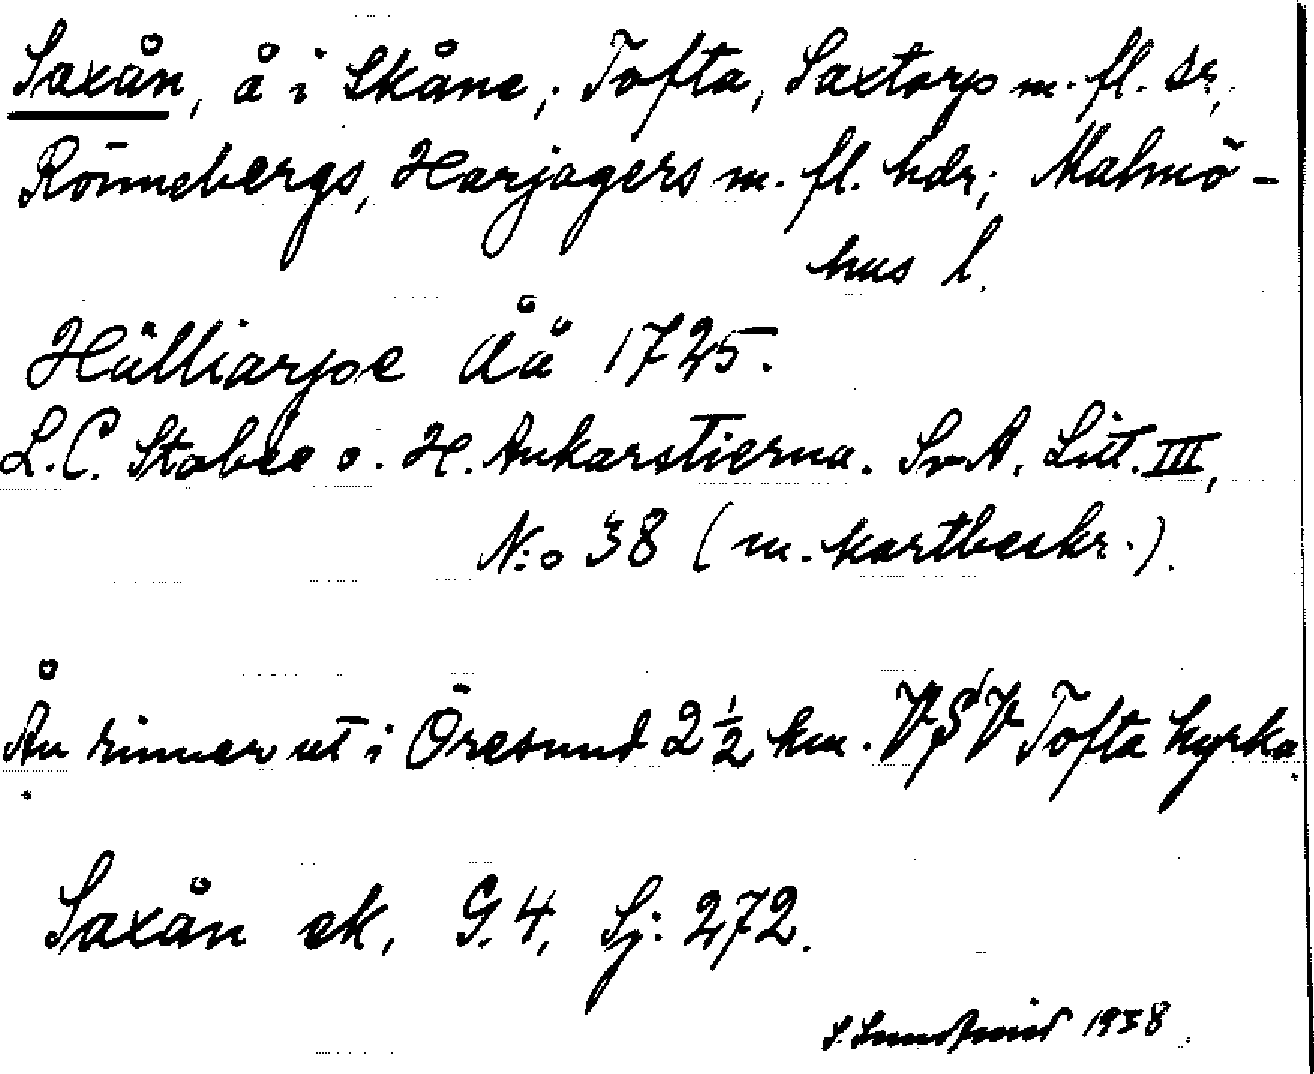 Saxån, å i Skåne, Tofta, Saxtorp m. fl. sr,
Rönnebergs, Harjagers m. fl. hdr; Malmö-
hus l.
Hälliarpe Åå 1725.
L.C. Stobée o. H. Ankarstierna. SvA. Litt. III,
N:o 38 (m. kartbeskr.).
Ån rinner ut i Öresund 2 1/2 km. VSV Tofta kyrka.
Saxån ek, G. 4, Sj: 272.
1938